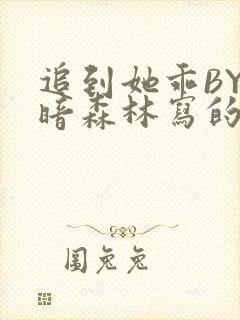 追到她乖BY
暗森林寫的
圓兔兔